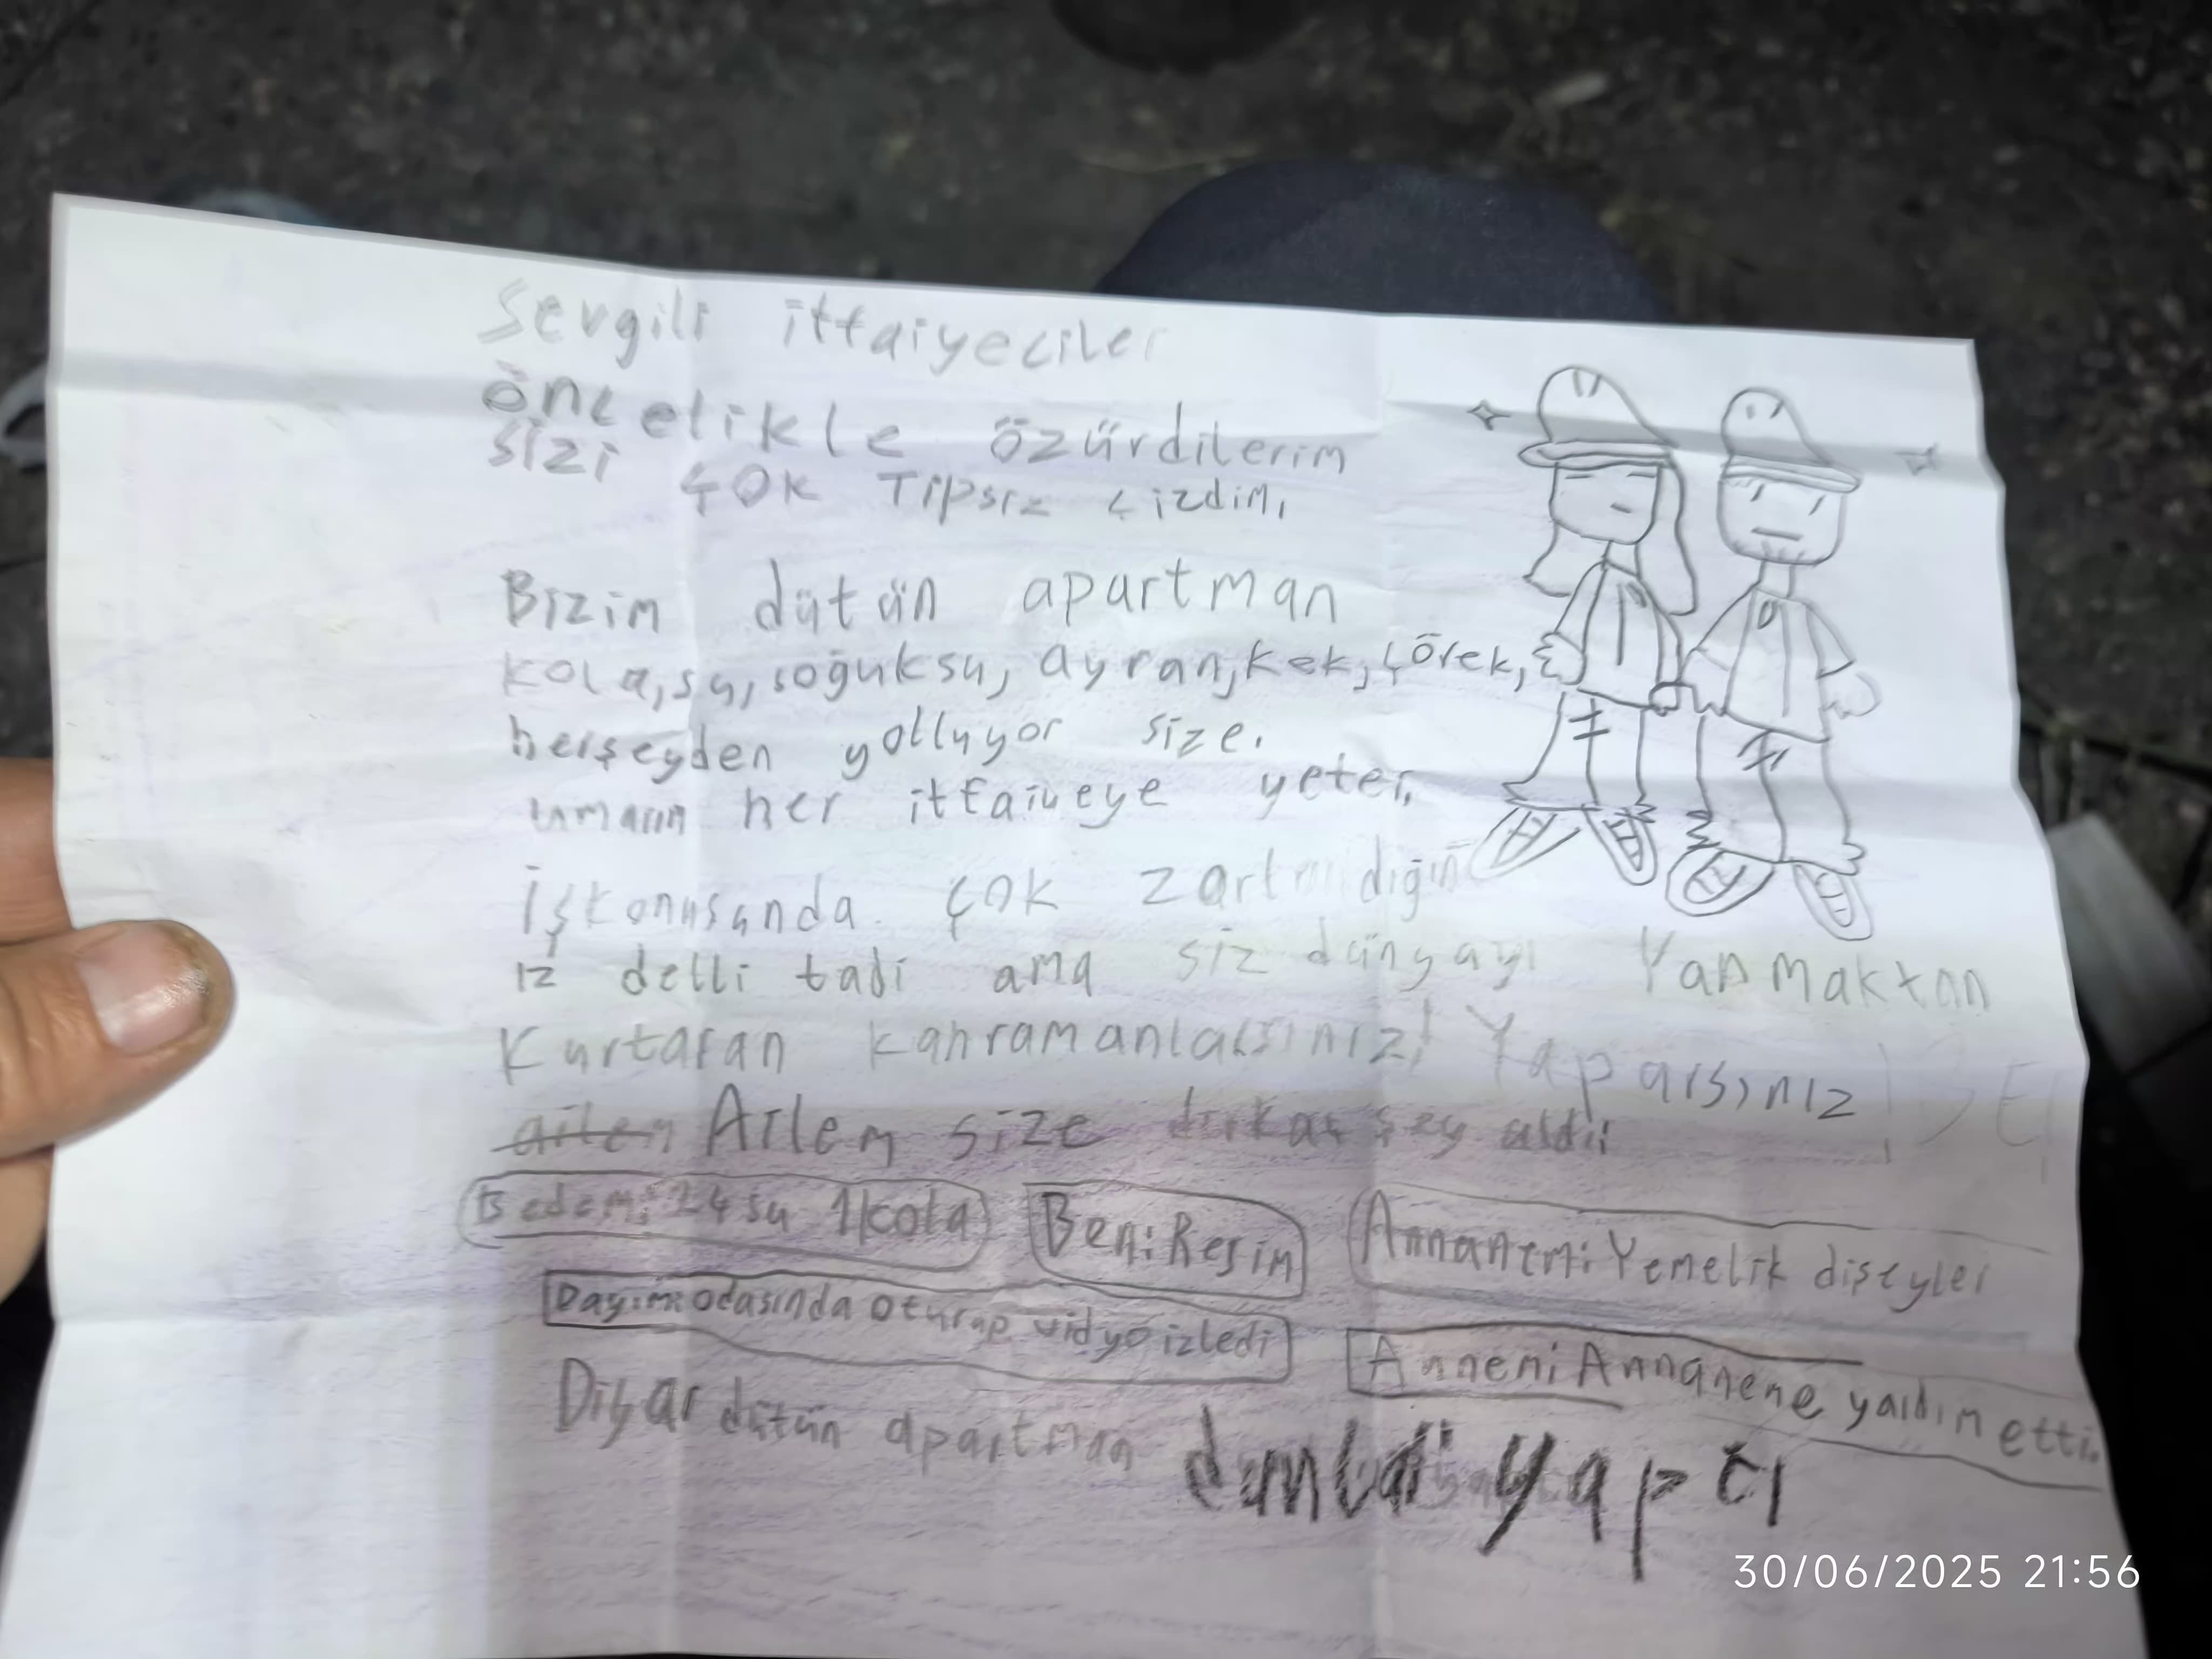 Sevgili itfaiyeciler
öncelikle özürdilerim
sizi çok Tipsiz çizdim,
Bizim dütün apartman
kola, su, soğuksu, ayran, kek, çörek,
herşeyden yolluyor size.
umarım her itfaiyeye yeter.
İşkonusunda çok zorlandığın
ız delli tabi ama siz dünyayı Yanmaktan
Kurtaran kahramanlarsınız! Yaparsınız
ailem Ailem size dirkaç şey aldı:
Dedem: 24 su 1 kola
Ben: Resim
Annanem: Yemelik dişeyler
Dayım: odasında oturup vidyo izledi
Annem: Annaneme yardım etti.
Diyar dütün apartman dunları yaptı
30/06/2025 21:56